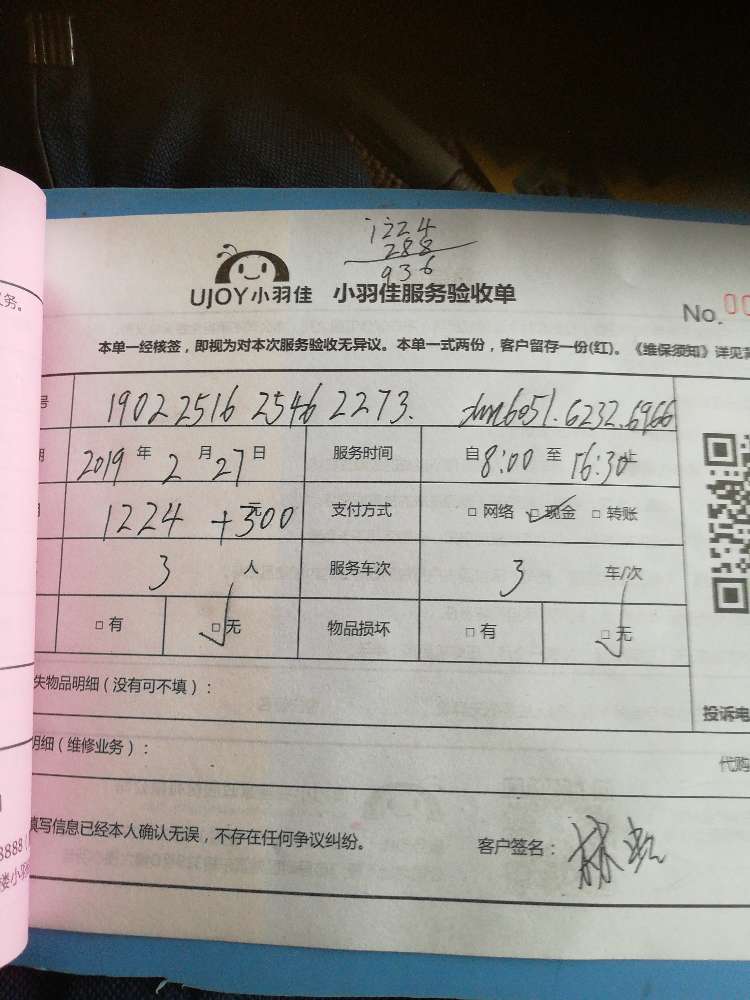 1224
288
936
UJOY小羽佳 小羽佳服务验收单
No. 00
本单一经核签，即视为对本次服务验收无异议。本单一式两份，客户留存一份(红)。《维保须知》详见
号 1902 2516 2546 2273.
2019 年 2 月 27 日 服务时间 自 8:00 至 16:30 止
1224 元 +300 支付方式 □ 网络 □ 现金 □ 转账
3 人 服务车次 3 车/次
□ 有 □ 无 物品损坏 □ 有 □ 无
失物品明细（没有可不填）：
投诉电
明细（维修业务）：
代购
填写信息已经本人确认无误，不存在任何争议纠纷。 客户签名：
务。
8888
楼小羽